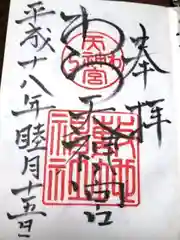 奉拝
水火天満宮
平成十八年睦月十五日